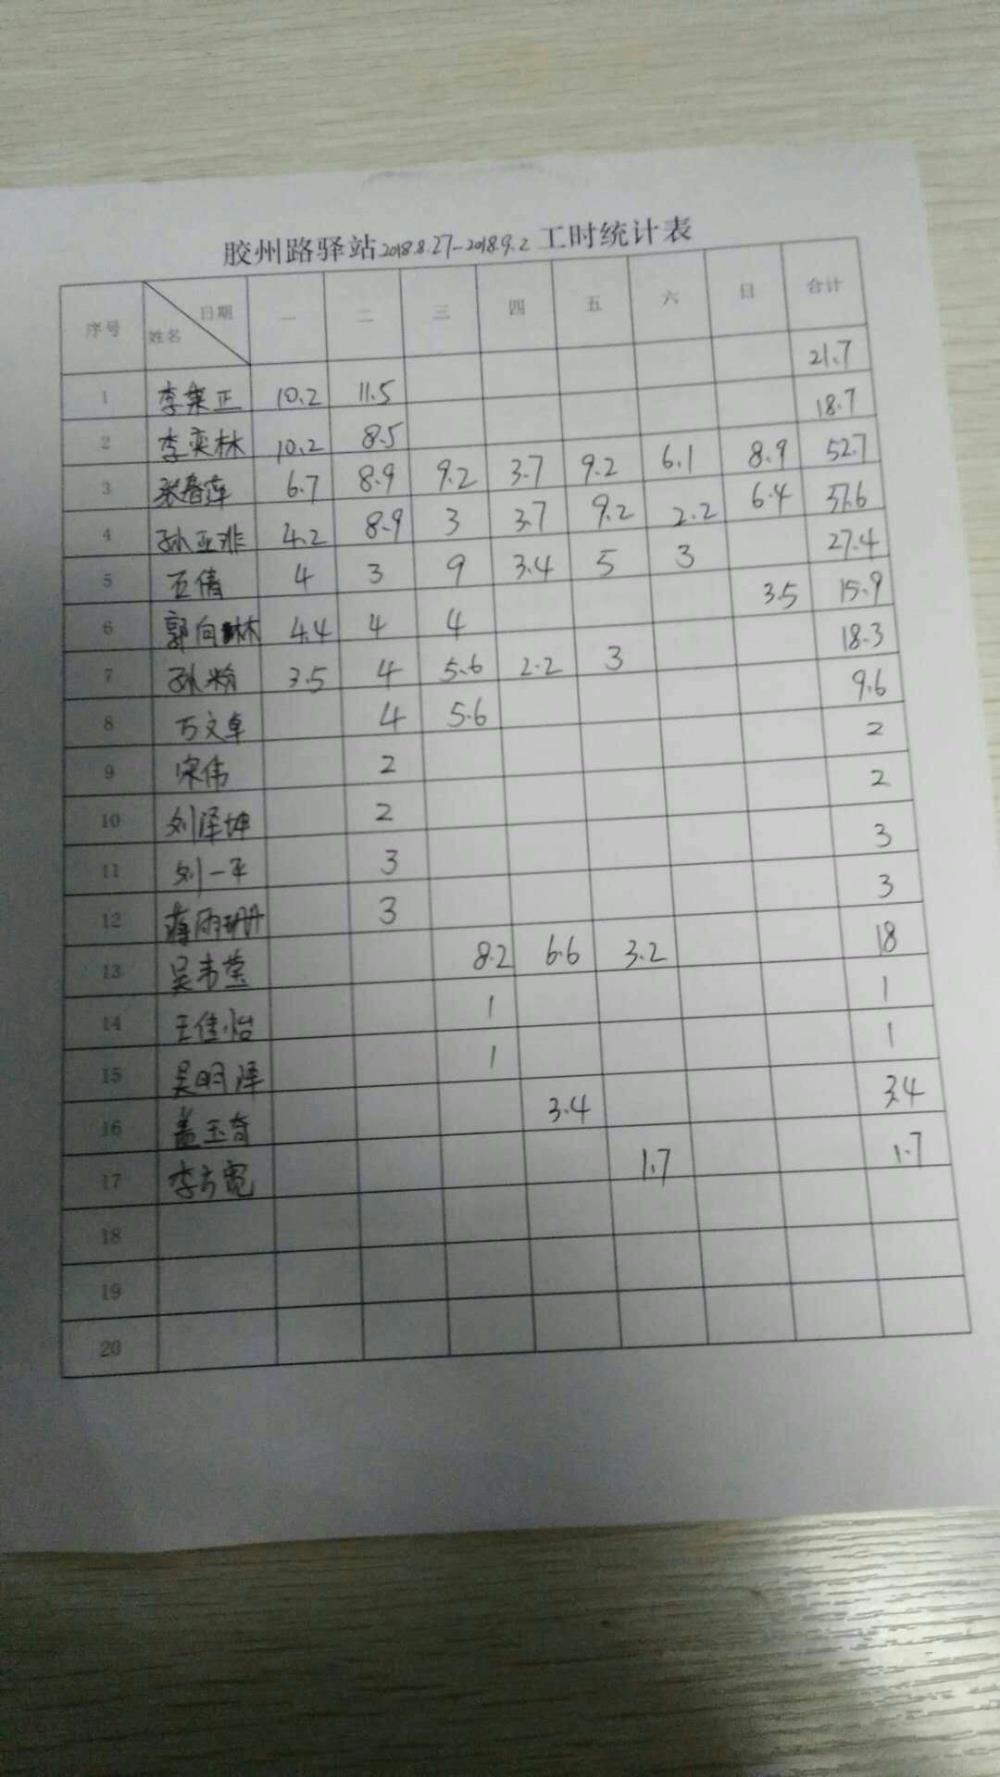 胶州路驿站2018.8.27-2018.9.2工时统计表
序号 日期 姓名 一 二 三 四 五 六 日 合计
1 李集正 10.2 11.5 21.7
2 李奕林 10.2 8.5 18.7
3 张春萍 6.7 8.9 9.2 3.7 9.2 6.1 8.9 52.7
4 孙亚非 4.2 8.9 3 3.7 9.2 2.2 6.4 37.6
5 石倩 4 3 9 3.4 5 3 27.4
6 郭向林 4.4 4 4 3.5 15.9
7 孙 3.5 4 5.6 2.2 3 18.3
8 万文卓 4 5.6 9.6
9 宋伟 2 2
10 刘泽坤 2 2
11 刘一平 3 3
12 蒋雨珊 3 3
13 吴韦莹 8.2 6.6 3.2 18
14 王佳怡 1 1
15 吴明泽 1 1
16 盖玉奇 3.4 3.4
17 李方宽 1.7 1.7
18
19
20